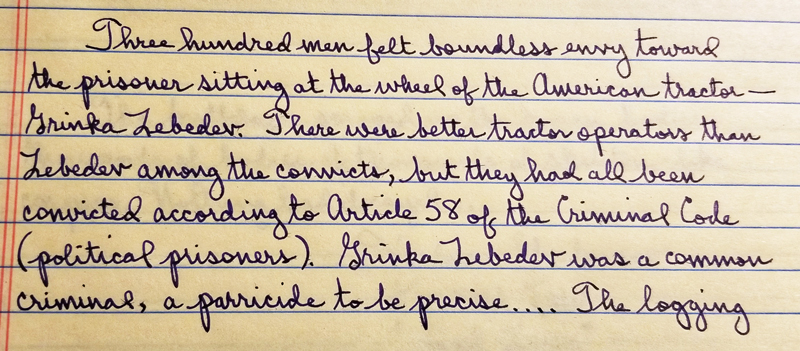 Three hundred men felt boundless envy toward
the prisoner sitting at the wheel of the American tractor—
Grinka Lebedev. There were better tractor operators than
Lebedev among the convicts, but they had all been
convicted according to Article 58 of the Criminal Code
(political prisoners). Grinka Lebedev was a common
criminal, a parricide to be precise.... The logging